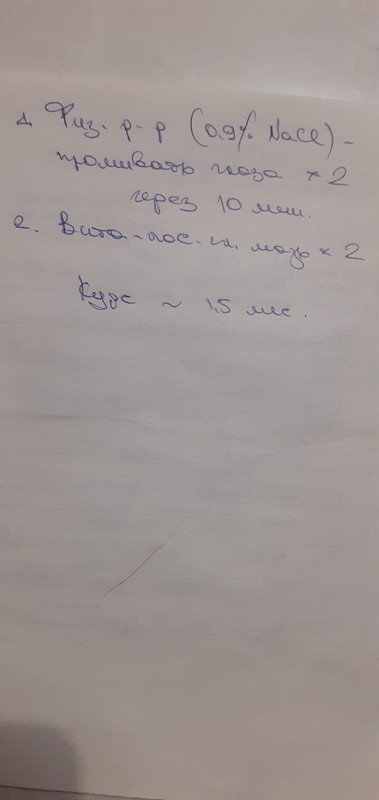 1. Физ. р-р (0.9% NaCl) -
промывать глаза × 2
через 10 мин.
2. Вита-пос. гл. мазь × 2
Курс ~ 1,5 мес.